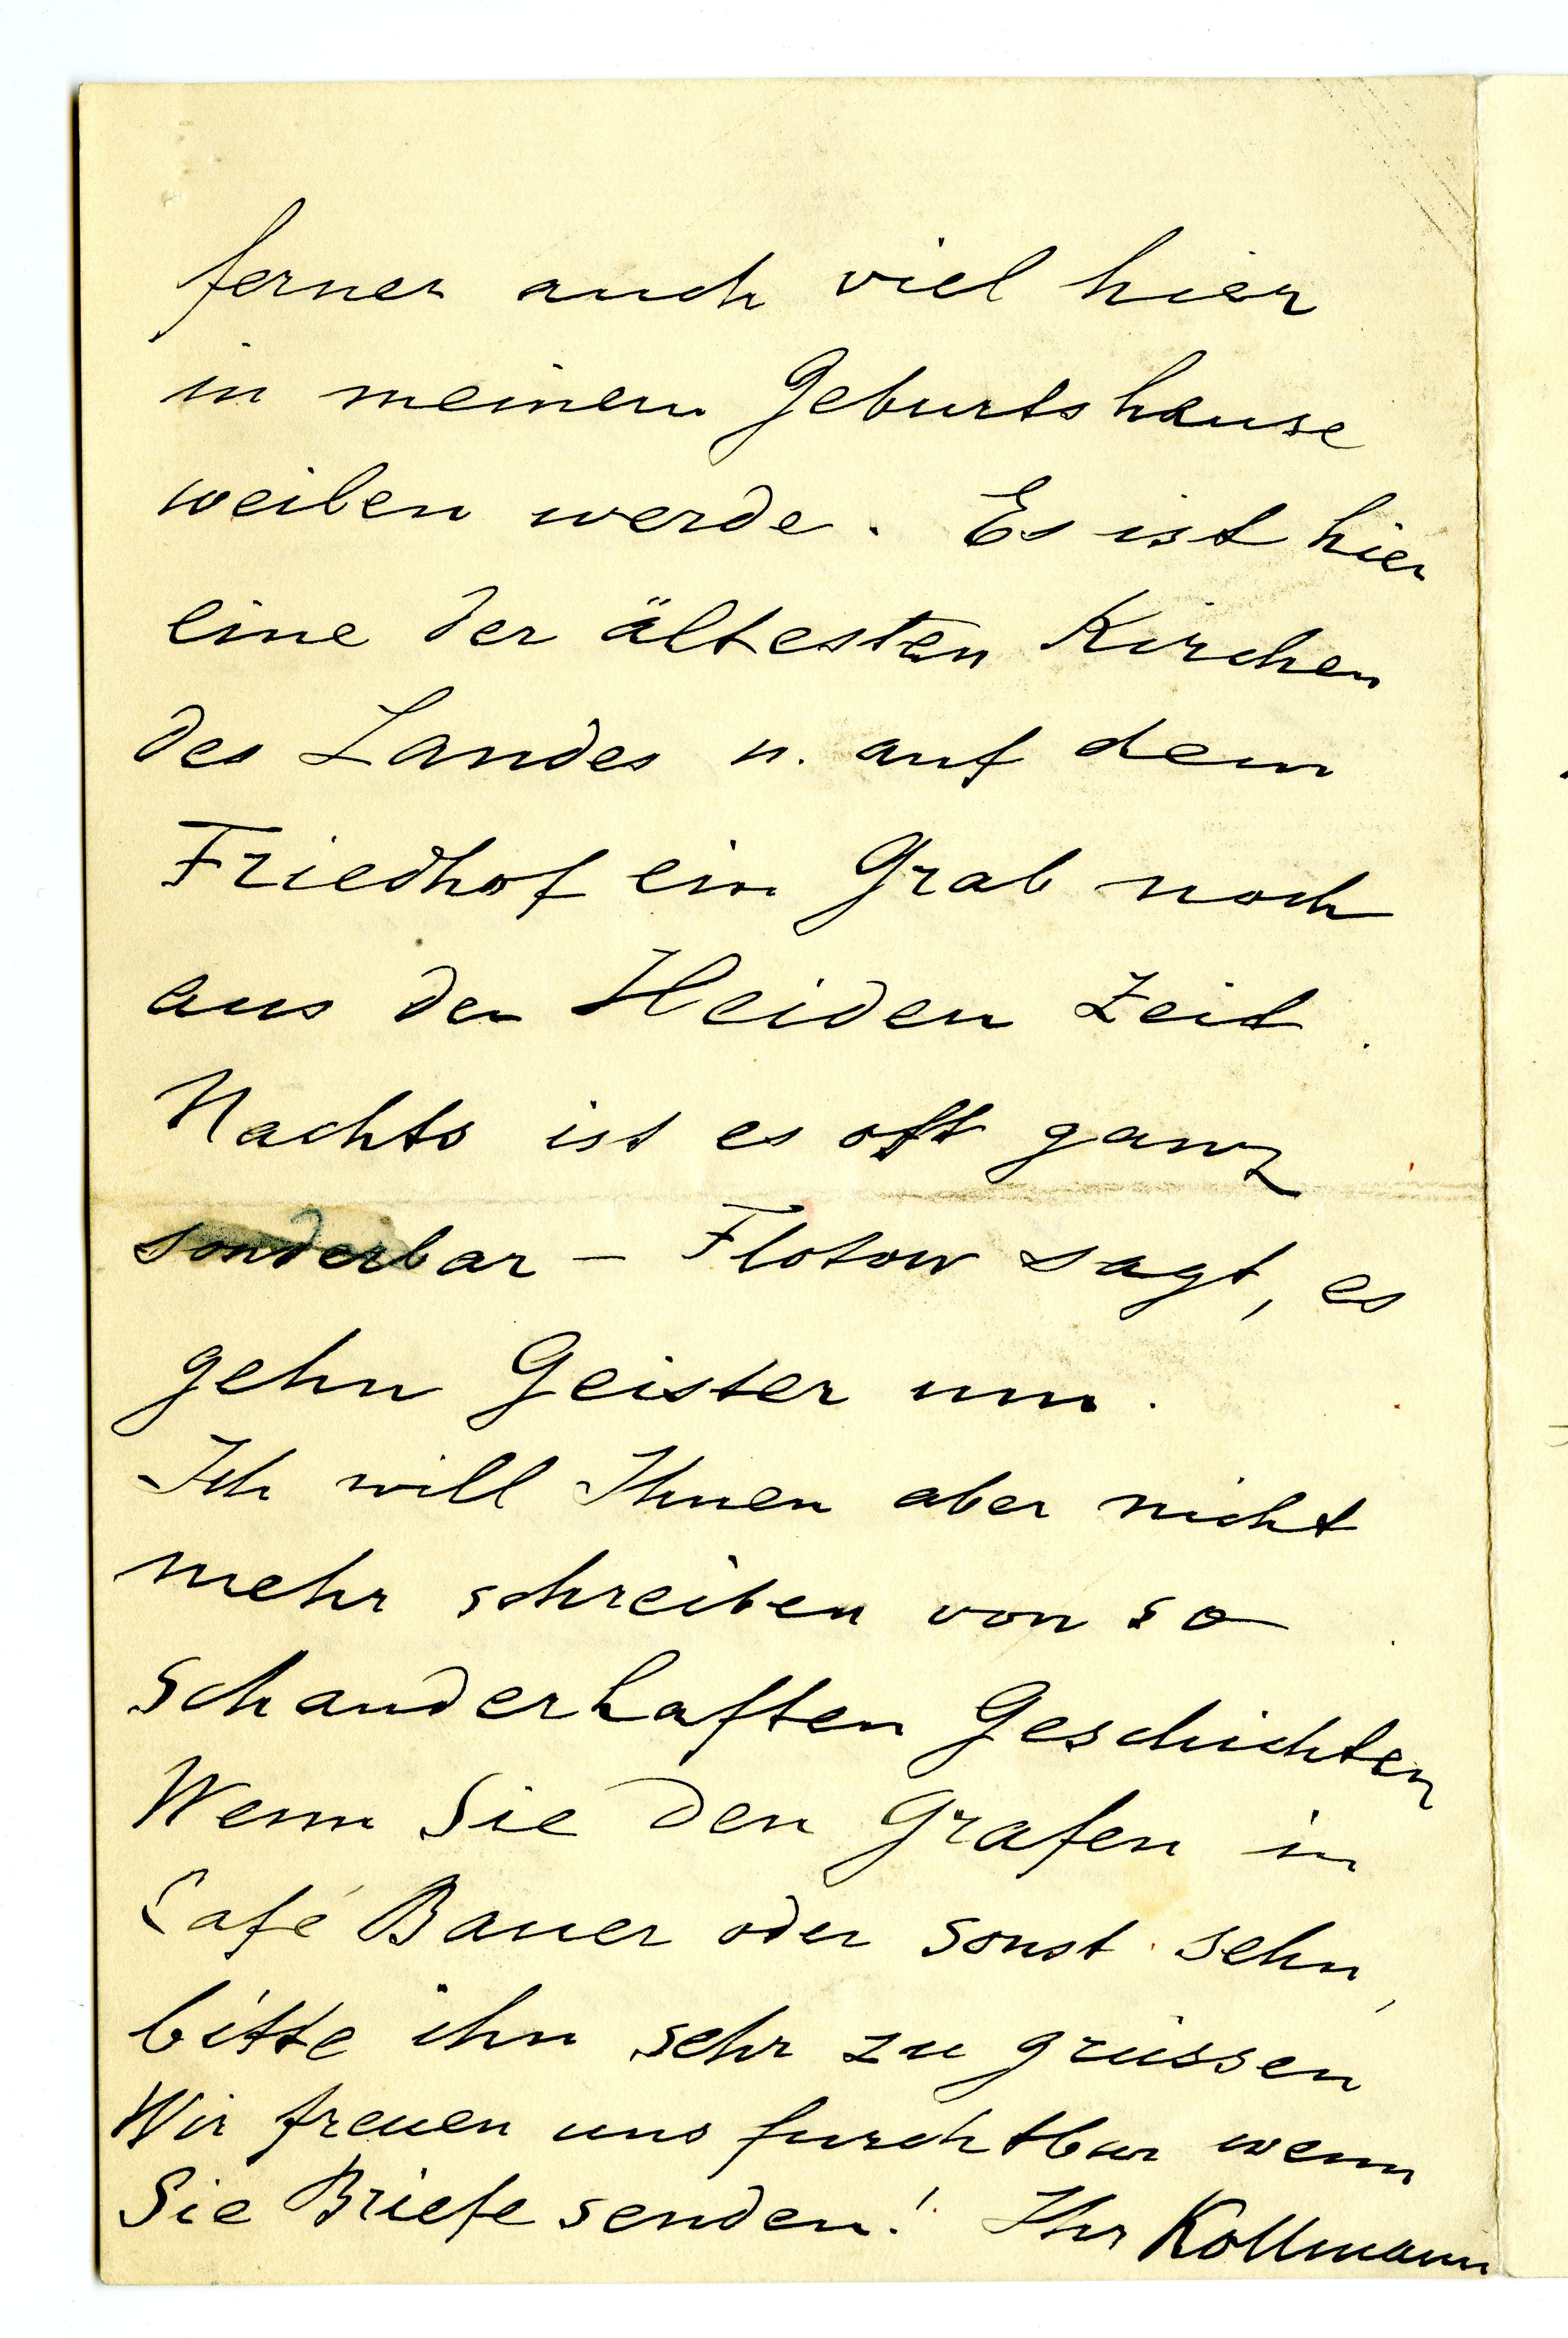 ferner auch viel hier
in meinem Geburtshause
weilen werde. Es ist hier
eine der ältesten Kirchen
des Landes u. auf dem
Friedhof ein Grab noch
aus der Heiden Zeit.
Nachts ist es oft ganz
sonderbar – Flotow sagt, es
gehn Geister um.
Ich will Ihnen aber nicht
mehr schreiben von so
schauderhaften Geschichten
Wenn Sie den Grafen in
Café Bauer oder sonst sehn,
bitte ihn sehr zu grüssen
Wir freuen uns furchtbar wenn
Sie Briefe senden! Ihr Kollmann